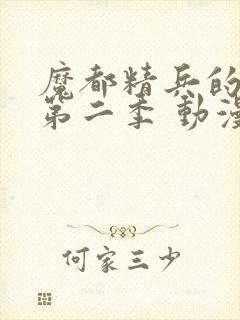 魔都精兵的
第二季 動漫
何家三少